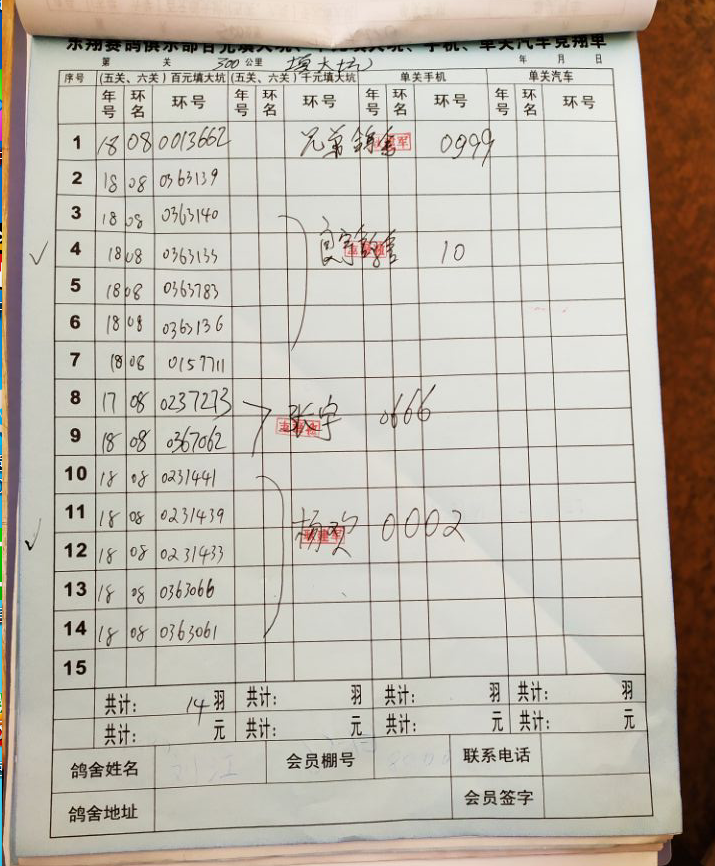 东翔赛鸽俱乐部百元填大坑、千元填大坑、手机、单关汽车竞翔单
第 关 300 公里 填大坑 年 月 日
序号 (五关、六关)百元填大坑 (五关、六关)千元填大坑 单关手机 单关汽车
年号 环名 环号 年号 环名 环号 年号 环名 环号 年号 环名 环号
1 18 08 0013662 兄弟鸽舍 0999
2 18 08 0363139
3 18 08 0363140
4 18 08 0363135 10
5 18 08 0363783
6 18 08 0363136
7 18 08 0157711
8 17 08 0237273 张宇 0666
9 18 08 0367062
10 18 08 0231441
11 18 08 0231439 杨欢 0002
12 18 08 0231433
13 18 08 0363066
14 18 08 0363061
15
共计: 14 羽 共计: 羽 共计: 羽 共计: 羽
共计: 元 共计: 元 共计: 元 共计: 元
鸽舍姓名 会员棚号 联系电话
鸽舍地址 会员签字